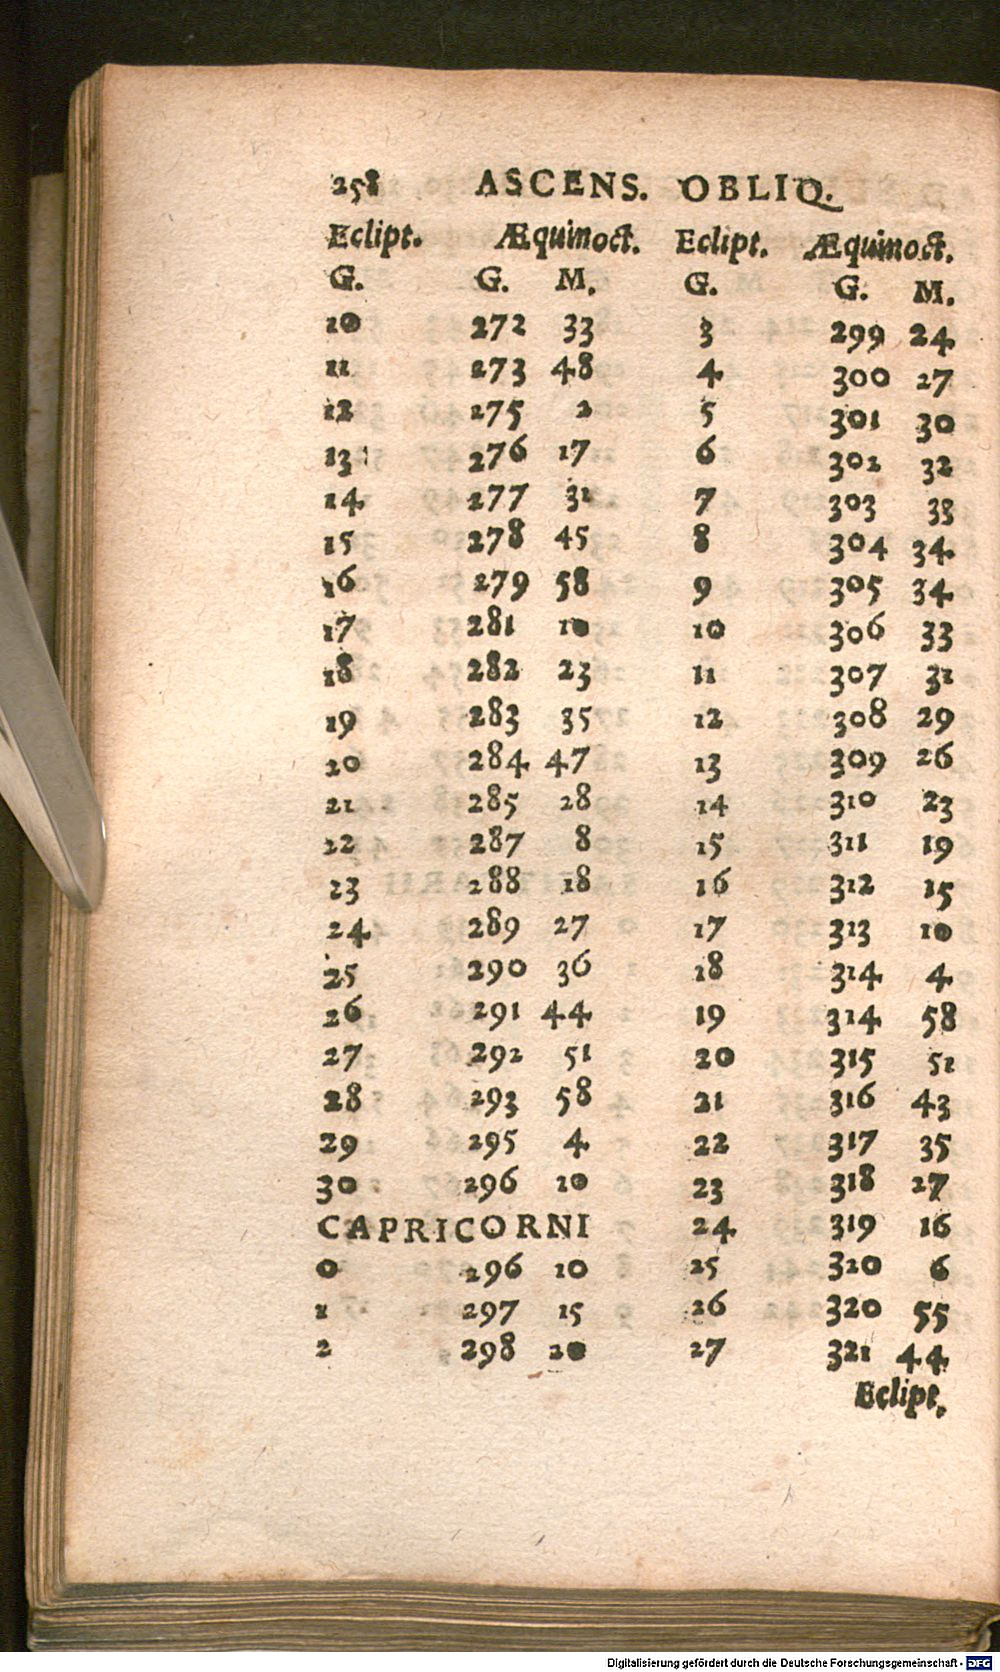 258 ASCENS. OBLIQ.
Eclipt. Æquinoct. Eclipt. Æquinoct.
G. G. M. G. G. M.
10 272 33 3 299 24
11 273 48 4 300 27
12 275 2 5 301 30
13 276 17 6 302 32
14 277 31 7 303 33
15 278 45 8 304 34
16 279 58 9 305 34
17 281 10 10 306 33
18 282 23 11 307 31
19 283 35 12 308 29
20 284 47 13 309 26
21 285 28 14 310 23
22 287 8 15 311 19
23 288 18 16 312 15
24 289 27 17 313 10
25 290 36 18 314 4
26 291 44 19 314 58
27 292 51 20 315 51
28 293 58 21 316 43
29 295 4 22 317 35
30 296 10 23 318 27
CAPRICORNI 24 319 16
0 296 10 25 320 6
1 297 15 26 320 55
2 298 20 27 321 44
Eclipt.
Digitalisierung gefördert durch die Deutsche Forschungsgemeinschaft - DFG